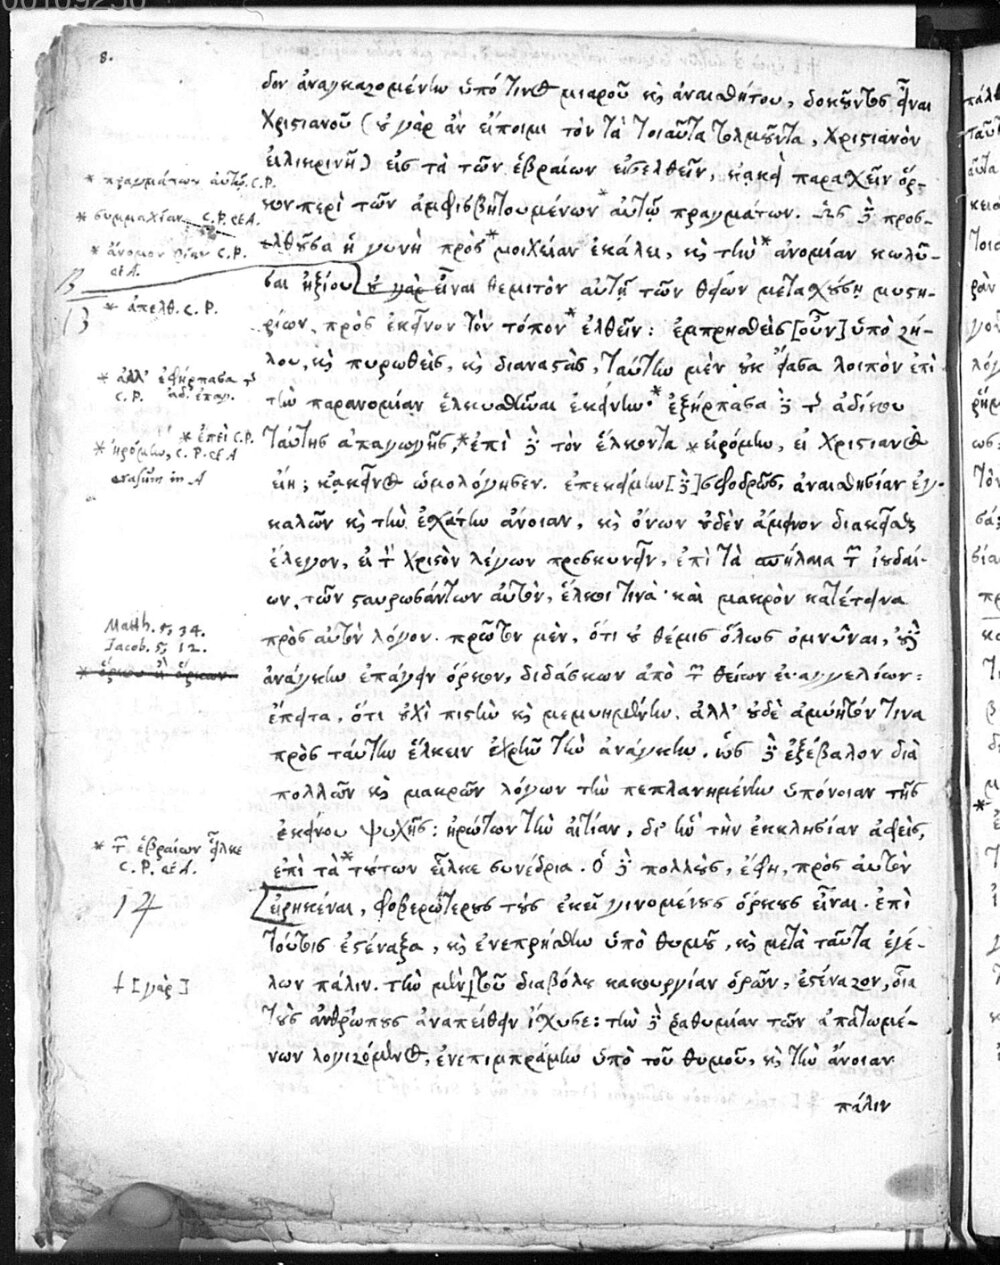 00109250
8.
δον ἀναγκαζομένην ὑπό τινος μιαροῦ κὶ ἀναισθήτου, δοκοῦντος εἶναι
Χριστιανοῦ (οὐ γὰρ ἂν εἴποιμι τὸν τὰ τοιαῦτα τολμῶντα, Χριστιανὸν
εἰλικρινῆ) εἰς τὰ τῶν ἑβραίων εἰσελθεῖν, κἀκεῖ παρασχεῖν ὅρ-
* πραγμάτων αὐτῷ. C.P.
κον περὶ τῶν ἀμφισβητουμένων * αὐτῷ πραγμάτων. ὡς δὲ προσ-
* συμμαχίαν C.P. et A.
ελθοῦσα ἡ γυνὴ πρὸς * μοιχείαν ἐκάλει, κὶ τὴν * ἀνομίαν κωλῦ-
* ἄνομον βίαν C.P. et A.
σαι ἠξίου [οὐ γὰρ εἶναι θεμιτὸν αὐτῇ τῶν θείων μετασχούσῃ μυστη-
13
* ἀπελθ. C.P.
ρίων, πρὸς ἐκεῖνον τὸν τόπον * ἐλθεῖν: ἐμπρησθεὶς [οὖν] ὑπὸ ζή-
λου, κὶ πυρωθεὶς, κὶ διαναστὰς, ταύτην μὲν οὐκ εἴασα λοιπὸν ἐπὶ
* ἀλλ' ἐξήρπασα τ ἀδ. ἐπαγ. C.P.
τὴν παρανομίαν ἑλκυσθῆναι ἐκείνην. * ἐξήρπασα δὲ τ ἀδίκου
* ἐπεὶ C.P.
ταύτης ἀπαγωγῆς, * ἐπὶ δὲ τὸν ἕλκοντα * εἰρόμην, εἰ Χριστιανὸς
* ἠρόμην, C.P. et A
erasum in A
εἴη; κἀκεῖνος ὡμολόγησεν. ἐπεκείμην [δὲ] σφοδρῶς, ἀναισθησίαν ἐγ-
καλῶν κὶ τὴν ἐσχάτην ἄνοιαν, κὶ ὄνων οὐδὲν ἄμεινον διακεῖσθαι
ἔλεγον, εἰ τ Χριστὸν λέγων προσκυνεῖν, ἐπὶ τὰ σπήλαια τ ἰουδαί-
ων, τῶν σταυρωσάντων αὐτὸν, ἕλκοι τινά· καὶ μακρὸν κατέτεινα
Matth. 5, 34.
Jacob. 5, 12.
πρὸς αὐτὸν λόγον. πρῶτον μὲν, ὅτι οὐ θέμις ὅλως ὀμνῦναι, οὐδὲ
ἀνάγκην ἐπάγειν ὅρκων, διδάσκων ἀπὸ τ θείων εὐαγγελίων:
ἔπειτα, ὅτι οὐχὶ πιστὴν κὶ μεμυημένην, ἀλλ' οὐδὲ ἀμύητόν τινα
πρὸς ταύτην ἕλκειν ἐχρῆν τὴν ἀνάγκην. ὡς δὲ ἐξέβαλον διὰ
πολλῶν κὶ μακρῶν λόγων τὴν πεπλανημένην ὑπόνοιαν τῆς
ἐκείνου ψυχῆς: ἠρώτων τὴν αἰτίαν, δι' ἣν τὴν ἐκκλησίαν ἀφεὶς,
* τ ἑβραίων εἷλκε C.P. et A.
ἐπὶ τὰ * τούτων εἷλκε συνέδρια. Ὁ δὲ πολλοὺς, ἔφη, πρὸς αὐτὸν
14
[εἰρηκέναι, φοβερωτέρους τοὺς ἐκεῖ γινομένους ὅρκους εἶναι. ἐπὶ
τούτοις ἐστέναξα, κὶ ἐνεπρήσθην ὑπὸ θυμοῦ, κὶ μετὰ ταῦτα ἐγέ-
+ [γὰρ]
λων πάλιν. τὴν μὲν + τοῦ διαβόλου κακουργίαν ὁρῶν, ἐστέναζον, οἷα
τοὺς ἀνθρώπους ἀναπείθειν ἴσχυσε: τὴν δὲ ῥαθυμίαν τῶν ἀπατωμέ-
νων λογιζόμενος, ἐνεπιμπράμην ὑπὸ τοῦ θυμοῦ, κὶ τὴν ἄνοιαν
πάλιν